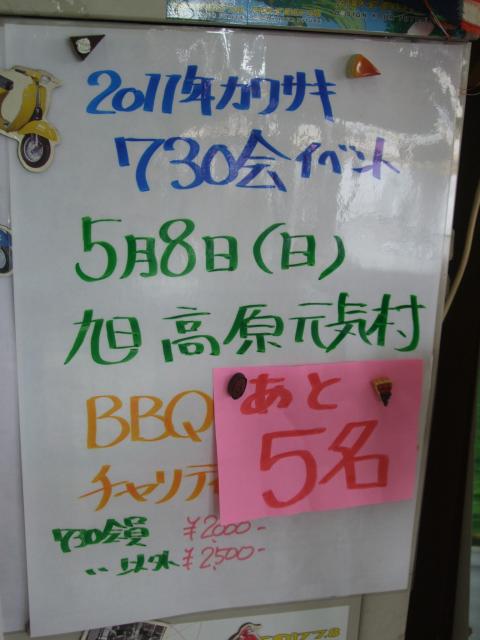 2011年カワサキ
730会イベント
5月8日(日)
旭高原元気村
BBQ
チャリティ
あと
5名
730会員 ¥2,000-
〃 以外 ¥2,500-